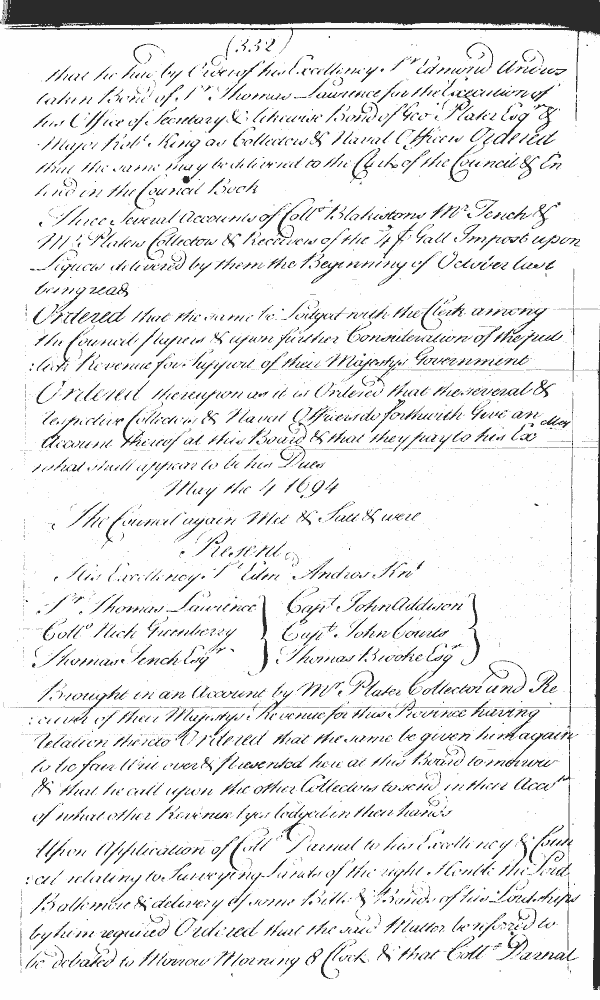 (332)
that he had by Order of his Excellency Sr Edmond Andros
taken Bond of Sr Thomas Lawrence for the Execution of
his Office of Secretary & likewise Bond of Geo Plater Esqr &
Major Robt King as Collectors & Naval Officers Ordered
that the same may be delivered to the Clerk of the Council & En
terd in the Council Book
Three Several Accounts of Collo Blakistons Mr Tench &
Mr Platers Collectors & Receivers of the Gall Impost upon
Liquors delivered by them the Beginning of October last
being read
Ordered that the same be Lodged with the Clerk among
the Council papers & upon further Consideration of the pub
:lick Revenue for Support of their Majestys Government
Ordered thereupon as it is Ordered that the several &
respective Collectors & Naval Officers do forthwith Give an
Account thereof at this Board & that they pay to his Excy
what shall appear to be his Dues
May the 4 1694
The Council again Met & Satt & were
Present
His Excellency Sr Edm Andros Knt
Sr Thomas Lawrence } Capt John Addison }
Collo Nich Greenberry } Capt John Courts }
Thomas Tench Esqr } Thomas Brooke Esqr }
Brought in an Account by Mr Plater Collector and Re
:ceiver of their Majestys Revenue for this Province having
relation thereto Ordered that the same be given him again
to be fair Writ over & presented here at this Board tomorrow
& that he call upon the other Collectors to send in their Accots
of what other Revenue lyes lodged in their hands
Upon Application of Collo Darnal to his Excellency & Coun
:cil relating to Surveying Lands of the right Honble the Lord
Baltemore & delivery of some Bills & Bonds of his Lordships
by him required Ordered that the said Matter be referred to
be debated to Morrow Morning 8 Clock & that Collo Darnal